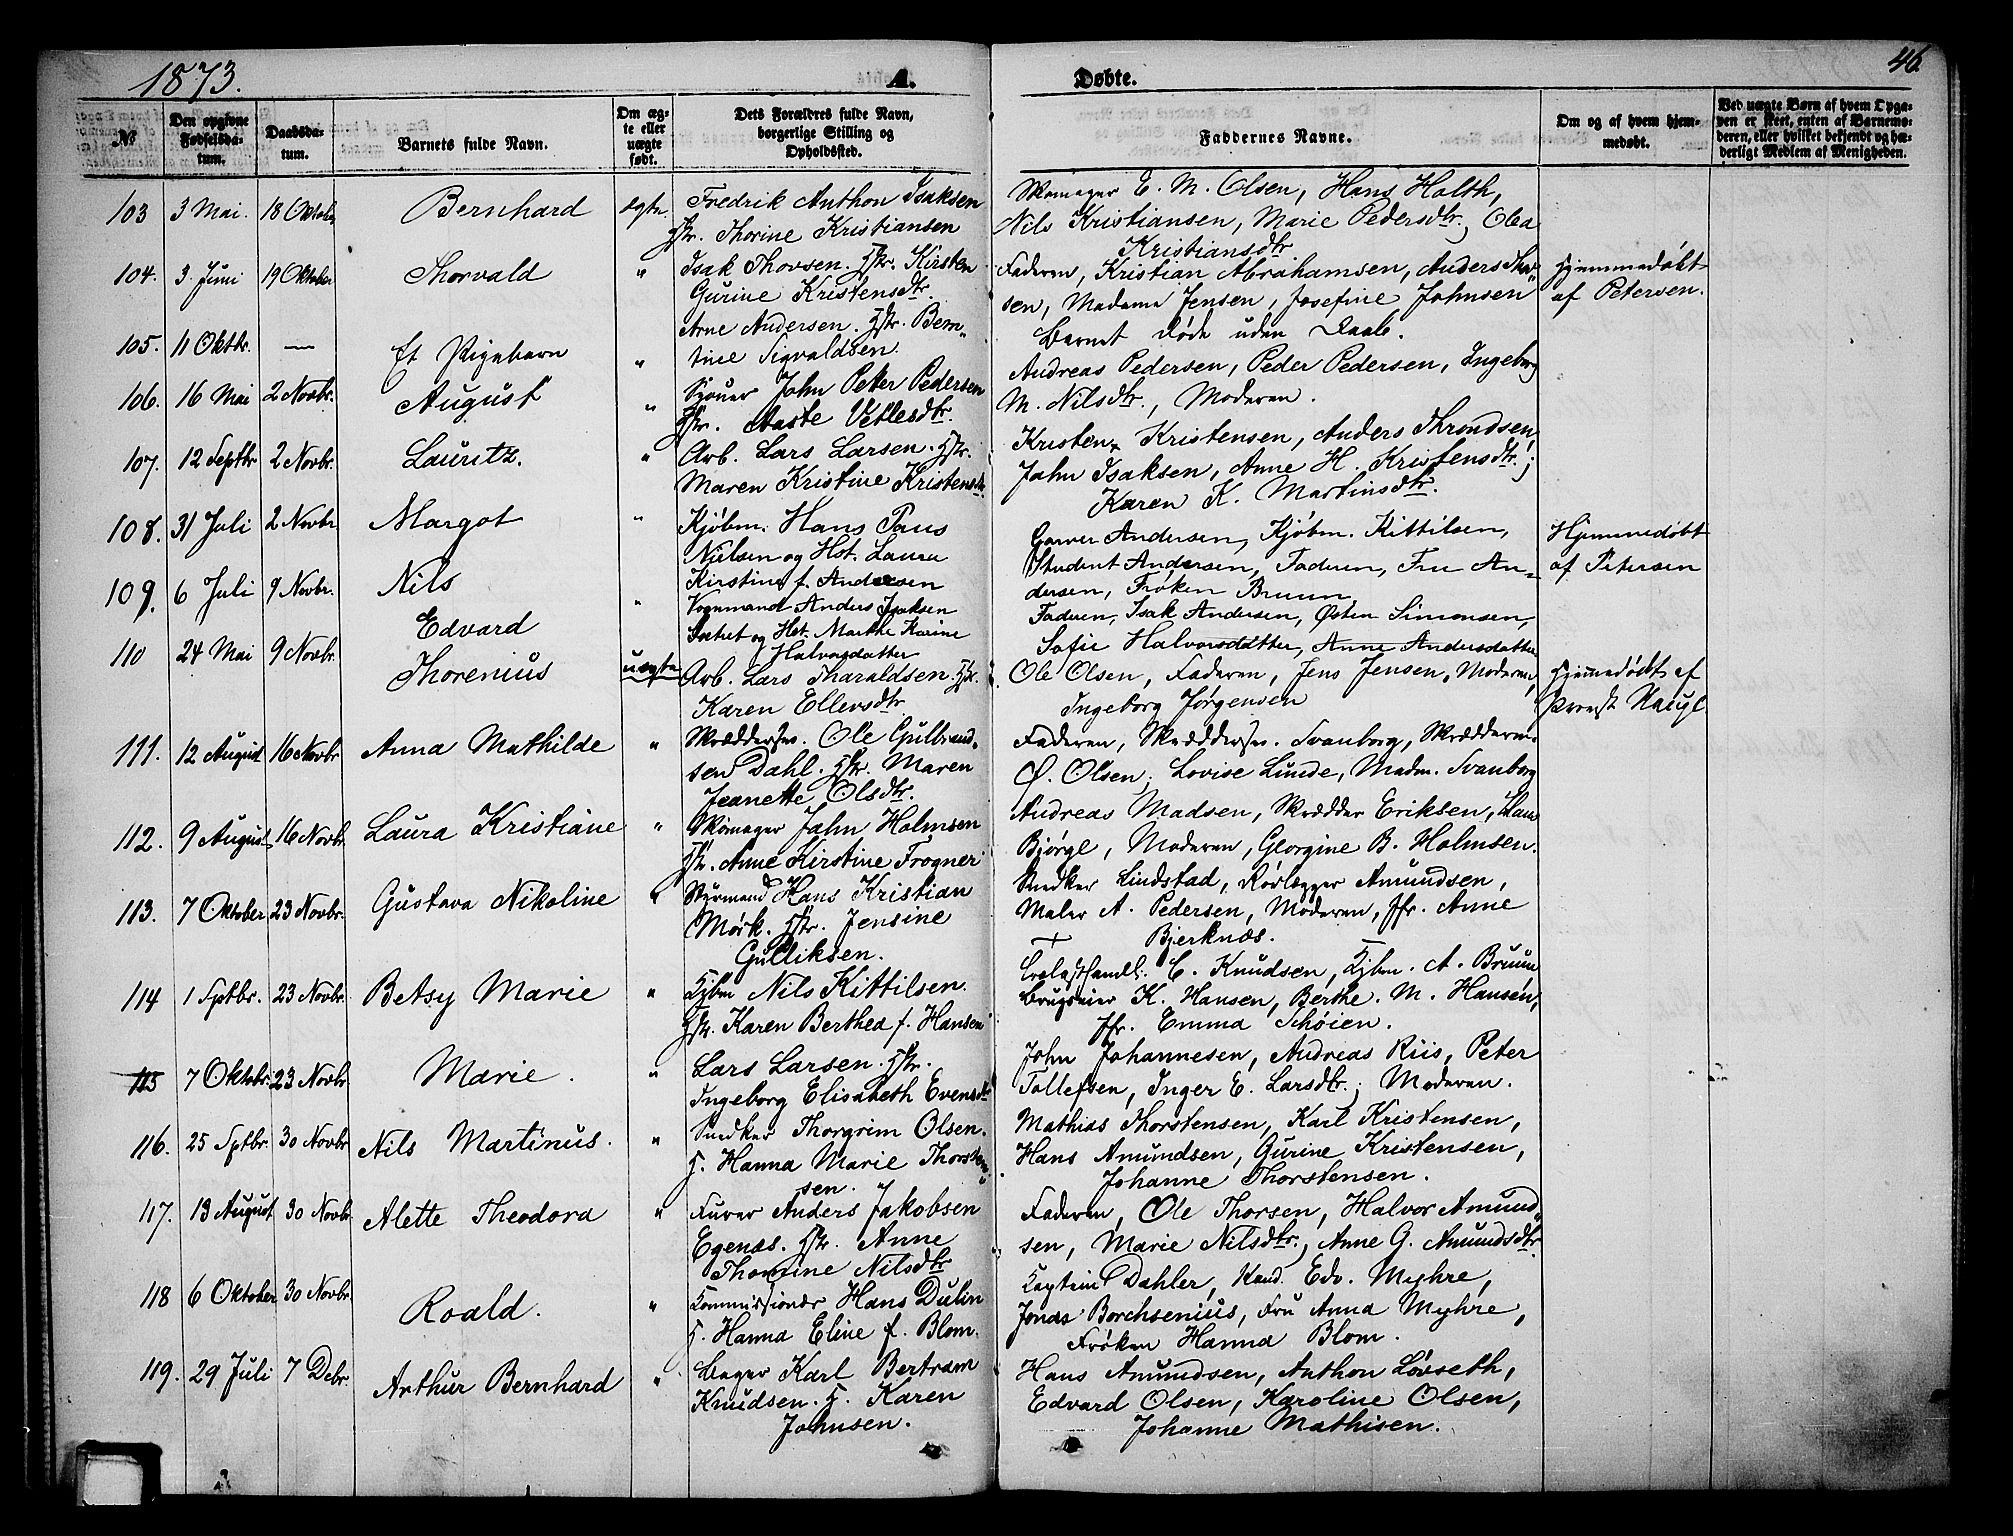 1873.
A.
Døbte.
46.
№
Den opgivne Fødselsdatum.
Daabsdatum.
Barnets fulde Navn.
Om ægte eller uægte født.
Dets Forældres fulde Navn, borgerlige Stilling og Opholdssted.
Faddernes Navne.
Om og af hvem hjemmedøbt.
Ved uægte Børn af hvem Opgaven er skeet, enten af Barnemoderen, eller hvilket bekjendt og hæderligt Medlem af Menigheden.
103 3 Mai. 18 Oktob. Bernhard ægte. Fredrik Anthon Isaksen
Hstr. Thorine Kristiansen
Skomager E. M. Olsen, Hans Holth,
Nils Kristiansen, Marie Pedersdtr., Olea
Kristiansdtr.
104. 3 Juni 19 Oktober Thorvald " Isak Thovsen. Hstr. Kirsten
Gurine Kristensdtr.
Faderen, Kristian Abrahamsen, Anders Thov"
sen, Madame Jensen, Josefine Johnsen
Hjemmedøbt
af Petersen.
105. 11 Oktbr. — Et Pigebarn " Arne Andersen. Hstr. Bern"
tine Sigvaldsen.
Barnet døde uden Daab.
106. 16 Mai 2 Novbr. August " Sjouer John Peter Pedersen
Hstr. Aaste Vetlesdtr.
Andreas Pedersen, Peder Pedersen, Ingeborg
M. Nilsdtr., Moderen.
107. 12 Septbr 2 Novbr. Lauritz. " Arb. Lars Larsen. Hstr.
Maren Kristine Kristensdtr.
Kristen Kristensen, Anders Throndsen,
John Isaksen, Anne H. Kristensdtr.;
Karen K. Martinsdtr.
108. 31 Juli 2 Novbr Margot " Kjøbm. Hans Paus
Nielsen og Hst. Laura
Kirstine f. Andersen
Garver Andersen, Kjøbm. Kittilsen,
Student Andersen, Faderen, Fru An-
dersen, Frøken Bruun
Hjemmedøbt
af Petersen
109. 6 Juli 9 Novbr. Nils
Edvard " Vognmand Anders Isaksen
og Hst. Marthe Karine
Halvorsdatter
Faderen, Isak Andersen, Østen Simonsen,
Sofie Halvorsdatter, Anne Andersdatter
110 24 Mai 9 Novbr. Thorenius uægte Arb. Lars Tharaldsen. Hstr.
Karen Ellevsdtr.
Ole Olsen, Faderen, Jens Jensen, Moderen,
Ingeborg Jørgensen
Hjemmedøbt af
Provst Hauge
111. 12 August 16 Novbr. Anna Mathilde " Skræddersv. Ole Gulbrand"
sen Dahl. Hstr. Maren
Jeanette Olsdtr.
Faderen, Skræddersv. Svanborg, Skrædderm.
Ø. Olsen, Lovise Lunde, Madm. Svanborg
112. 9 August 16 Novbr. Laura Kristiane " Skomager John Holmsen
Hstr. Anne Kirstine Frogner
Andreas Madsen, Skrædder Eriksen, Hans
Bjørge, Moderen, Georgine B. Holmsen.
113. 7 Oktober 23 Novbr. Gustava Nikoline " Styrmand Hans Kristian
Mørk. Hstr. Jensine
Gulliksen.
Snedker Lindstad, Rørlægger Amundsen,
Maler A. Pedersen, Moderen, Jfr. Anne
Bjerknæs.
114 1 Sptbr. 23 Novbr. Betsy Marie " Kjbm Nils Kittilsen.
Hstr. Karen Berthea f. Hansen
Trælasthandl. C. Knudsen, Kjbm. A. Bruun
Brugseier K. Hansen, Berthe M. Hansen,
Jfr. Emma Schøien.
115 7 Oktobr. 23 Novbr Marie. " Lars Larsen. Hstr.
Ingeborg Elisabeth Evensdtr
John Johannesen, Andreas Riis, Peter
Tollefsen, Inger E. Larsdtr.; Moderen.
116. 25 Sptbr. 30 Novbr Nils Martinus. " Snedker Thorgrim Olsen.
H. Hanna Marie Thorsten"
sen.
Mathias Thorstensen, Karl Kristensen,
Hans Amundsen, Gurine Kristensen,
Johanne Thorstensen.
117. 13 August 30 Novbr Alette Theodora " Furer Anders Jakobsen
Egenæs. Hstr. Anne
Thomine Nilsdtr
Faderen, Ole Thorsen, Halvor Amund"
sen, Marie Nilsdtr., Anne G. Amundsdtr.
118 6 Oktober 30 Novbr. Roald. " Kommissionær Hans Dulin
H. Hanna Eline f. Blom.
Kaptein Dahler, Kand. Edv. Myhre,
Jonas Borchsenius, Fru Anna Myhre,
Frøken Hanna Blom.
119. 29 Juli 7 Debr. Arthur Bernhard " Bager Karl Bertram
Knudsen. H. Karen
Johnsen.
Hans Amundsen, Anthon Løvseth,
Edvard Olsen, Karoline Olsen,
Johanne Mathisen.